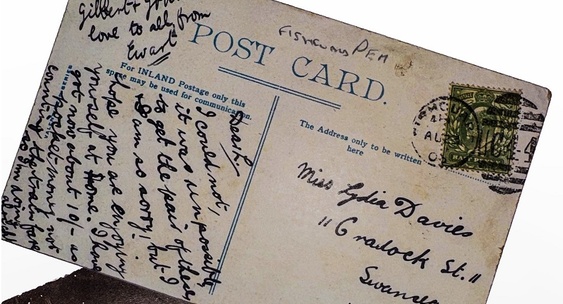 Gilbert &
love to all, from
Ewart
POST CARD.
FISHGUARD PEM
For INLAND Postage only this
space may be used for communication.
The Address only to be written
here
Miss Lydia Davies
11 Cradock St.
Swansea
Dear L.
I could not,
it was impossible
to get the pair of these
I am so sorry. but I
hope you are enjoying
yourself at home. I have
got now about 10/- as
pocket money not
counting the train fare